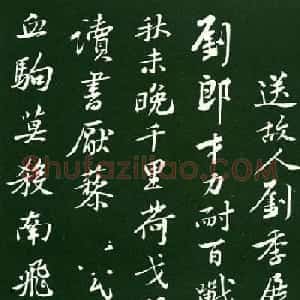 送故人劉季展
劉郎才力耐百戰
秋未晚千里荷戈
讀書厭藜
血駒莫教南飛
Shufaziliao.com